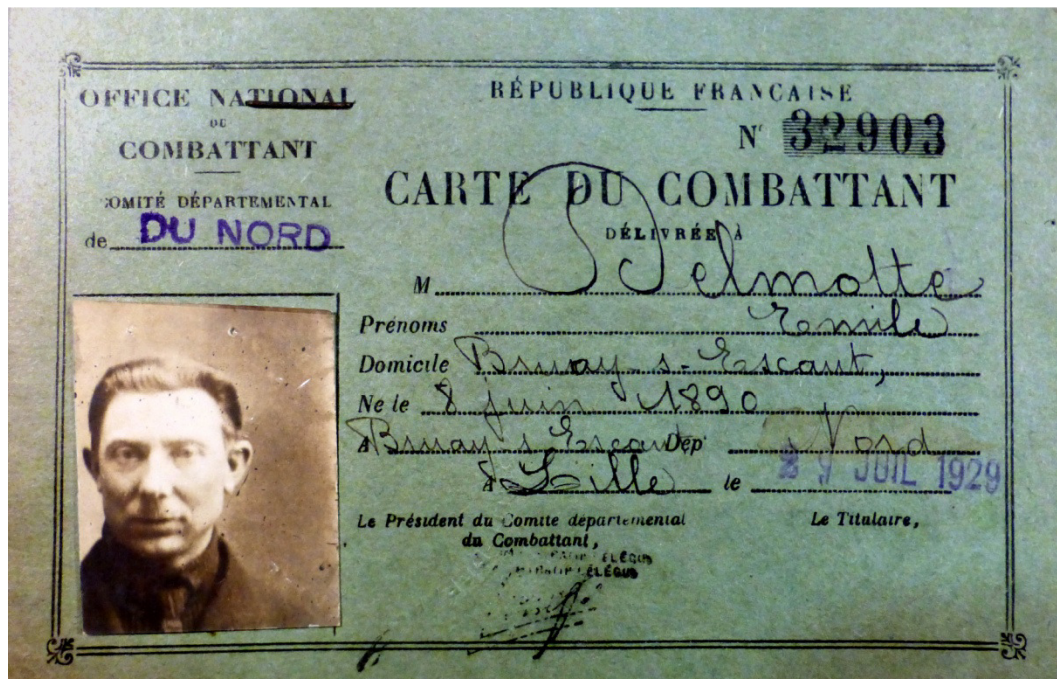 OFFICE NATIONAL
DU
COMBATTANT
COMITÉ DÉPARTEMENTAL
de DU NORD
RÉPUBLIQUE FRANÇAISE
N° 32903
CARTE DU COMBATTANT
DÉLIVRÉE A
M Delmotte
Prénoms Emile
Domicile Bruay-s-Escaut,
Né le 8 juin 1890
A Bruay s Escaut Dép Nord
A Lille le 29 JUIL 1929
Le Président du Comité départemental
du Combattant,
Le Titulaire,